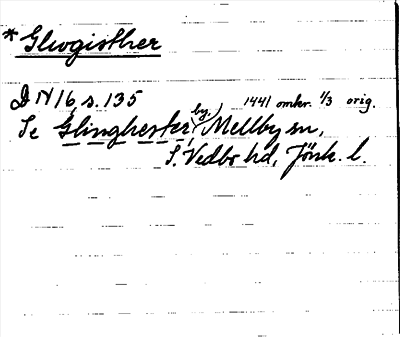 * Glwgisther
DN 16, s. 135 1441 omkr. 1/3 orig.
Se Glinghester, by, Mellby sn,
S. Vedbo hd, Jönk. l.